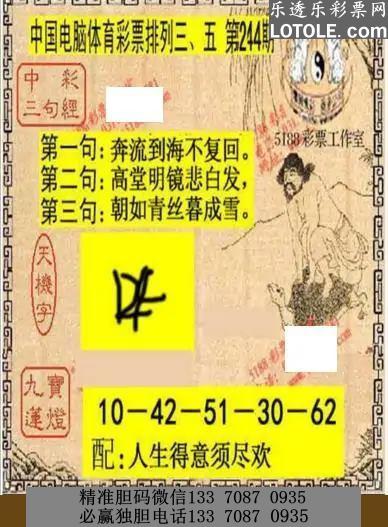 乐透乐彩票网
LOTOLE.COM
中国电脑体育彩票排列三、五 第244期
中彩
三句經
5188彩票工作室
第一句：奔流到海不复回。
第二句：高堂明镜悲白发，
第三句：朝如青丝暮成雪。
天機字
九寶
蓮燈
10－42－51－30－62
配：人生得意须尽欢
精准胆码微信133 7087 0935
必赢独胆电话133 7087 0935